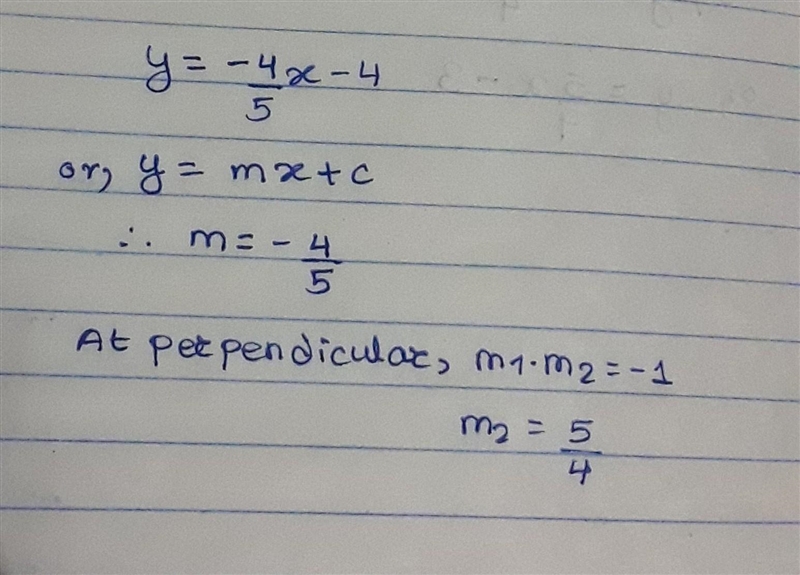 y = -4/5 x - 4
or, y = mx + c
∴ m = - 4/5
At perpendicular, m1·m2 = -1
m2 = 5/4